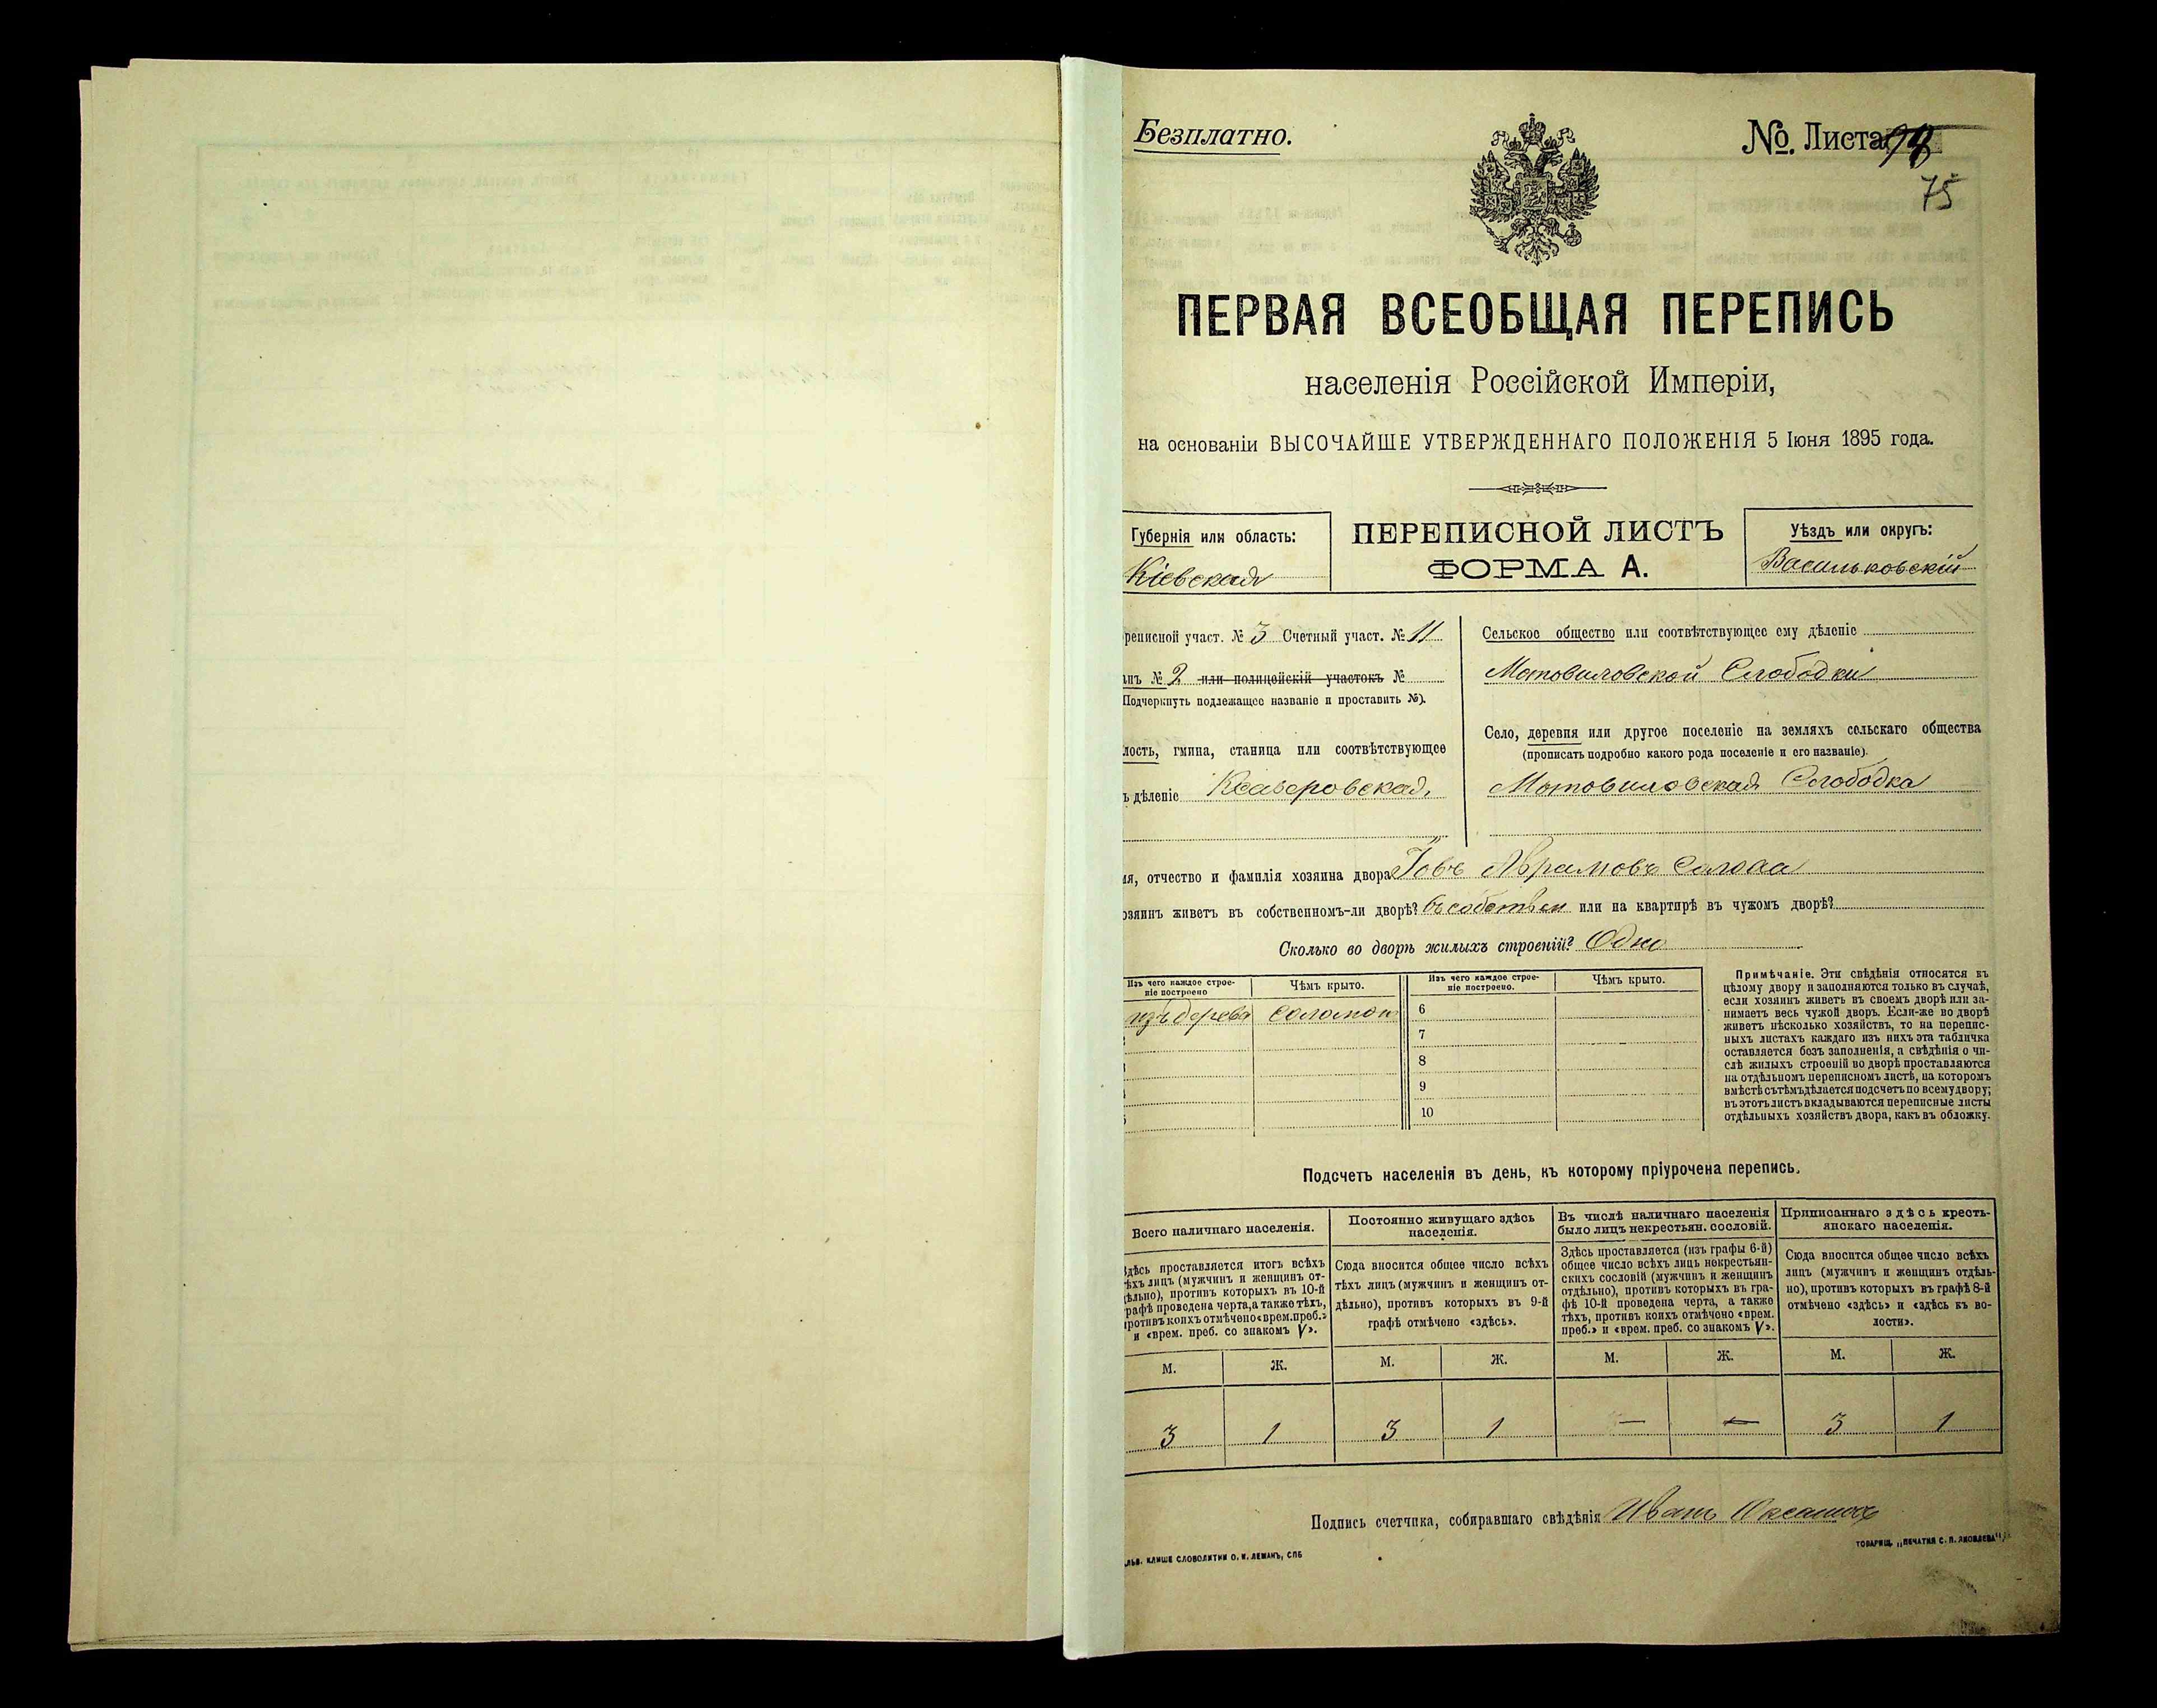 Безплатно.
№. Листа
75
ПЕРВАЯ ВСЕОБЩАЯ ПЕРЕПИСЬ
населенія Россійской Имперіи,
на основаніи ВЫСОЧАЙШЕ УТВЕРЖДЕННАГО ПОЛОЖЕНІЯ 5 Іюня 1895 года.
Губернія или область:
Кіевская
ПЕРЕПИСНОЙ ЛИСТЪ
ФОРМА А.
Уѣздъ или округъ:
Васильковскій
реписной участ. № 3 Счетный участ. № 11
анъ № 2 или полицейскій участокъ №
Подчеркнуть подлежащее названіе и проставить №).
лость, гмина, станица или соотвѣтствующее
ъ дѣленіе Ксаверовская,
Сельское общество или соотвѣтствующее ему дѣленіе
Мотовиловской Слободки
Село, деревня или другое поселеніе на земляхъ сельскаго общества
(прописать подробно какого рода поселеніе и его названіе).
Мотовиловская Слободка
мя, отчество и фамилія хозяина двора Іовъ Аврамовъ Солоха
озяинъ живетъ въ собственномъ-ли дворѣ? въ собствен или на квартирѣ въ чужомъ дворѣ?
Сколько во дворѣ жилыхъ строеній? Одно
Изъ чего каждое строе-
ніе построено
Чѣмъ крыто.
Изъ чего каждое строе-
ніе построено.
Чѣмъ крыто.
изъ дерева соломой
6
7
8
9
10
Примѣчаніе. Эти свѣдѣнія относятся къ
цѣлому двору и заполняются только въ случаѣ,
если хозяинъ живетъ въ своемъ дворѣ или за-
нимаетъ весь чужой дворъ. Если-же во дворѣ
живетъ нѣсколько хозяйствъ, то на перепис-
ныхъ листахъ каждаго изъ нихъ эта табличка
оставляется безъ заполненія, а свѣдѣнія о чи-
слѣ жилыхъ строеній во дворѣ проставляются
на отдѣльномъ переписномъ листѣ, на которомъ
вмѣстѣ съ тѣмъ дѣлается подсчетъ по всему двору;
въ этотъ листъ вкладываются переписные листы
отдѣльныхъ хозяйствъ двора, какъ въ обложку.
Подсчетъ населенія въ день, къ которому пріурочена перепись.
Всего наличнаго населенія.
Здѣсь проставляется итогъ всѣхъ
тѣхъ лицъ (мужчинъ и женщинъ от-
дѣльно), противъ которыхъ въ 10-й
графѣ проведена черта, а также тѣхъ,
противъ коихъ отмѣчено «врем. преб.»
и «врем. преб. со знакомъ V».
Постоянно живущаго здѣсь
населенія.
Сюда вносится общее число всѣхъ
тѣхъ лицъ (мужчинъ и женщинъ от-
дѣльно), противъ которыхъ въ 9-й
графѣ отмѣчено «здѣсь».
Въ числѣ наличнаго населенія
было лицъ некрестьян. сословій.
Здѣсь проставляется (изъ графы 6-й)
общее число всѣхъ лицъ некрестьян-
скихъ сословій (мужчинъ и женщинъ
отдѣльно), противъ которыхъ въ гра-
фѣ 10-й проведена черта, а также
тѣхъ, противъ коихъ отмѣчено «врем.
преб.» и «врем. преб. со знакомъ V».
Приписаннаго здѣсь кресть-
янскаго населенія.
Сюда вносится общее число всѣхъ
лицъ (мужчинъ и женщинъ отдѣль-
но), противъ которыхъ въ графѣ 8-й
отмѣчено «здѣсь» и «здѣсь къ во-
лости».
М. Ж. М. Ж. М. Ж. М. Ж.
3 1 3 1 — — 3 1
Подпись счетчика, собиравшаго свѣдѣнія Иванъ
ЛЬВ. КЛИШЕ СЛОВОЛИТНИ О. И. ЛЕМАНЪ, СПБ
ТОВАРИЩ. „ПЕЧАТНЯ С. П. ЯКОВЛЕВА"